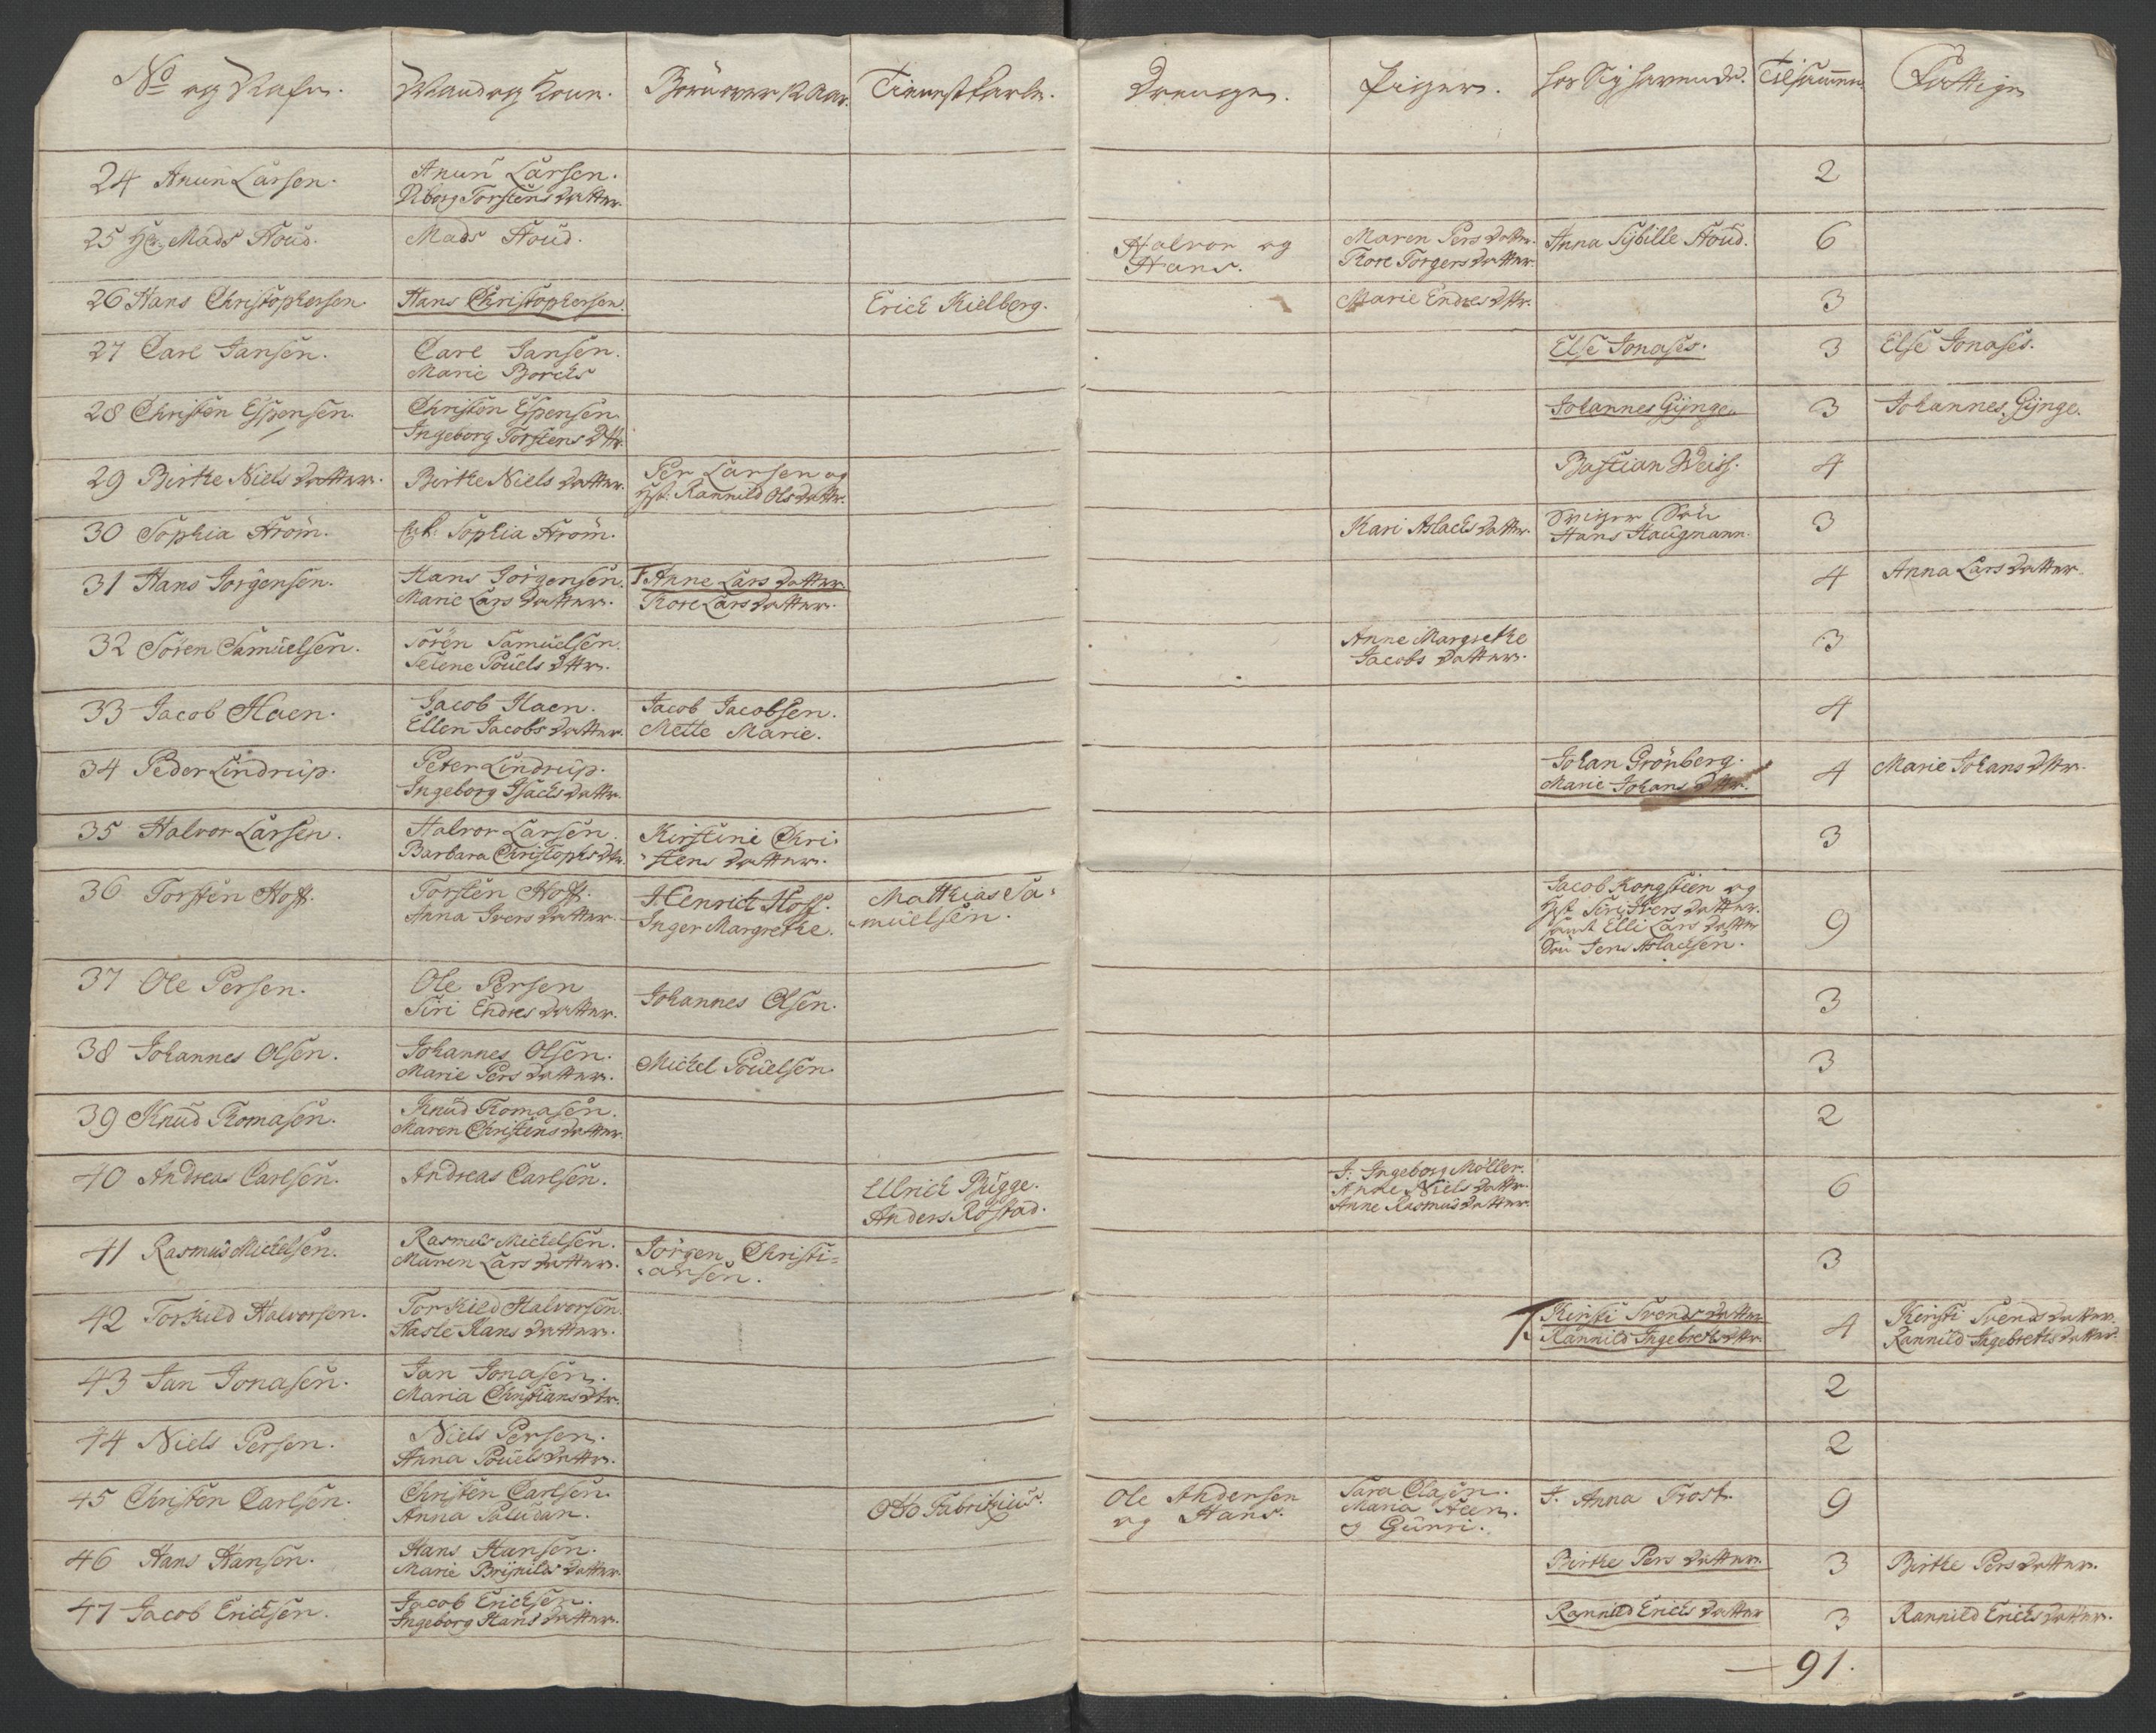 No og Nafn. Mand og Kone. Børn over 12 Aar. Tienestkarle. Drenge. Piger. hos sig havende. Tilsammen Fattige
24 Anun Larsen. Anun Larsen. 2
Torstens datter.
25 Hr. Mads Stoud. Mads Stoud. Halvor og Maren Pers datter. Anna Sybille Stoud. 6
Hans. Tore Torgers datter.
26 Hans Christophersen Hans Christophersen. Erich Kielberg. Marie Endres dttr. 3
27 Carl Jansen. Carl Jansen. Else Jonases. 3 Else Jonases.
Marie Borchs
28 Christen Espensen. Christen Espensen. Johannes Gynge. 3 Johannes Gynge.
Ingeborg Torstens dttr.
29 Birthe Niels datter. Birthe Niels datter. Per Larsen og Bastian Weiss. 4
Rannild Ols dattr.
30 Sophia Strøm. Sophia Strøm. Kari Aslachs datter. Sviger Søn 3
Hans Haugmann.
31 Hans Jørgensen. Hans Jørgensen. Anne Lars datter 4 Anna Lars datter.
Marie Lars datter. Tore Lars datter.
32 Søren Samuelsen. Søren Samuelsen. Anne Margrethe 3
Selene Pouels dttr. Jacobs datter.
33 Jacob Haen. Jacob Haen. Jacob Jacobsen. 4
Ellen Jacobs datter. Mette Marie.
34 Peder Lindrup. Peter Lindrup. Johan Grönberg. 4 Marie Johans dttr.
Ingeborg Isachs dattr. Marie Johans dttr.
35 Halvor Larsen. Halvor Larsen. Kirstine Chri- 3
Barbara Christophs dtr. stens datter.
36 Torsten Hoff. Torsten Hoff. Henrich Hoff. Matthias Sa- Jacob Kongsteen og
Anna Ivers datter. Inger Margrethe. muelsen. Siri Ivers datter. 9
samt Elli Lars datter
Søn Jens Aslachsen.
37 Ole Persen. Ole Persen Johannes Olsen. 3
Siri Endres datter.
38 Johannes Olsen. Johannes Olsen. Michel Pouelsen. 3
Marie Pers datter.
39 Knud Tomasen. Knud Tomasen. 2
Maren Christens datter.
40 Andreas Carlsen. Andreas Carlsen. Ulrich Bugge. J. Ingeborg Møller. 6
Anders Rostad. Anne Niels dattr.
Anne Rasmus datter.
41 Rasmus Michelsen. Rasmus Michelsen. Jørgen Christi- 3
Maren Lars datter. ansen.
42 Torkild Halvorsen. Torkild Halvorsen. Kirsti Svends datter 4 Kirsti Svends datter.
Hans datter. Rannild Ingebrets dttr. Rannild Ingebrets datter.
43 Jan Jonasen. Jan Jonasen. 2
Maria Christians dtr.
44 Niels Persen. Niels Persen. 2
Anna Pouels dattr.
45 Christen Carlsen. Christen Carlsen. Otto Fabritius. Ole Andersen Sara Olasen. J. Anna Trost. 9
Anna Paludan. og Hans. Maria Steen.
og Gunri.
46 Hans Hansen. Hans Hansen. Birthe Pers datter. 3 Birthe Pers datter.
Marie Brynilds datter
47 Jacob Erichsen. Jacob Erichsen. Rannild Erichs datter 3 Rannild Erichs datter.
Ingeborg Hans datter.
91.